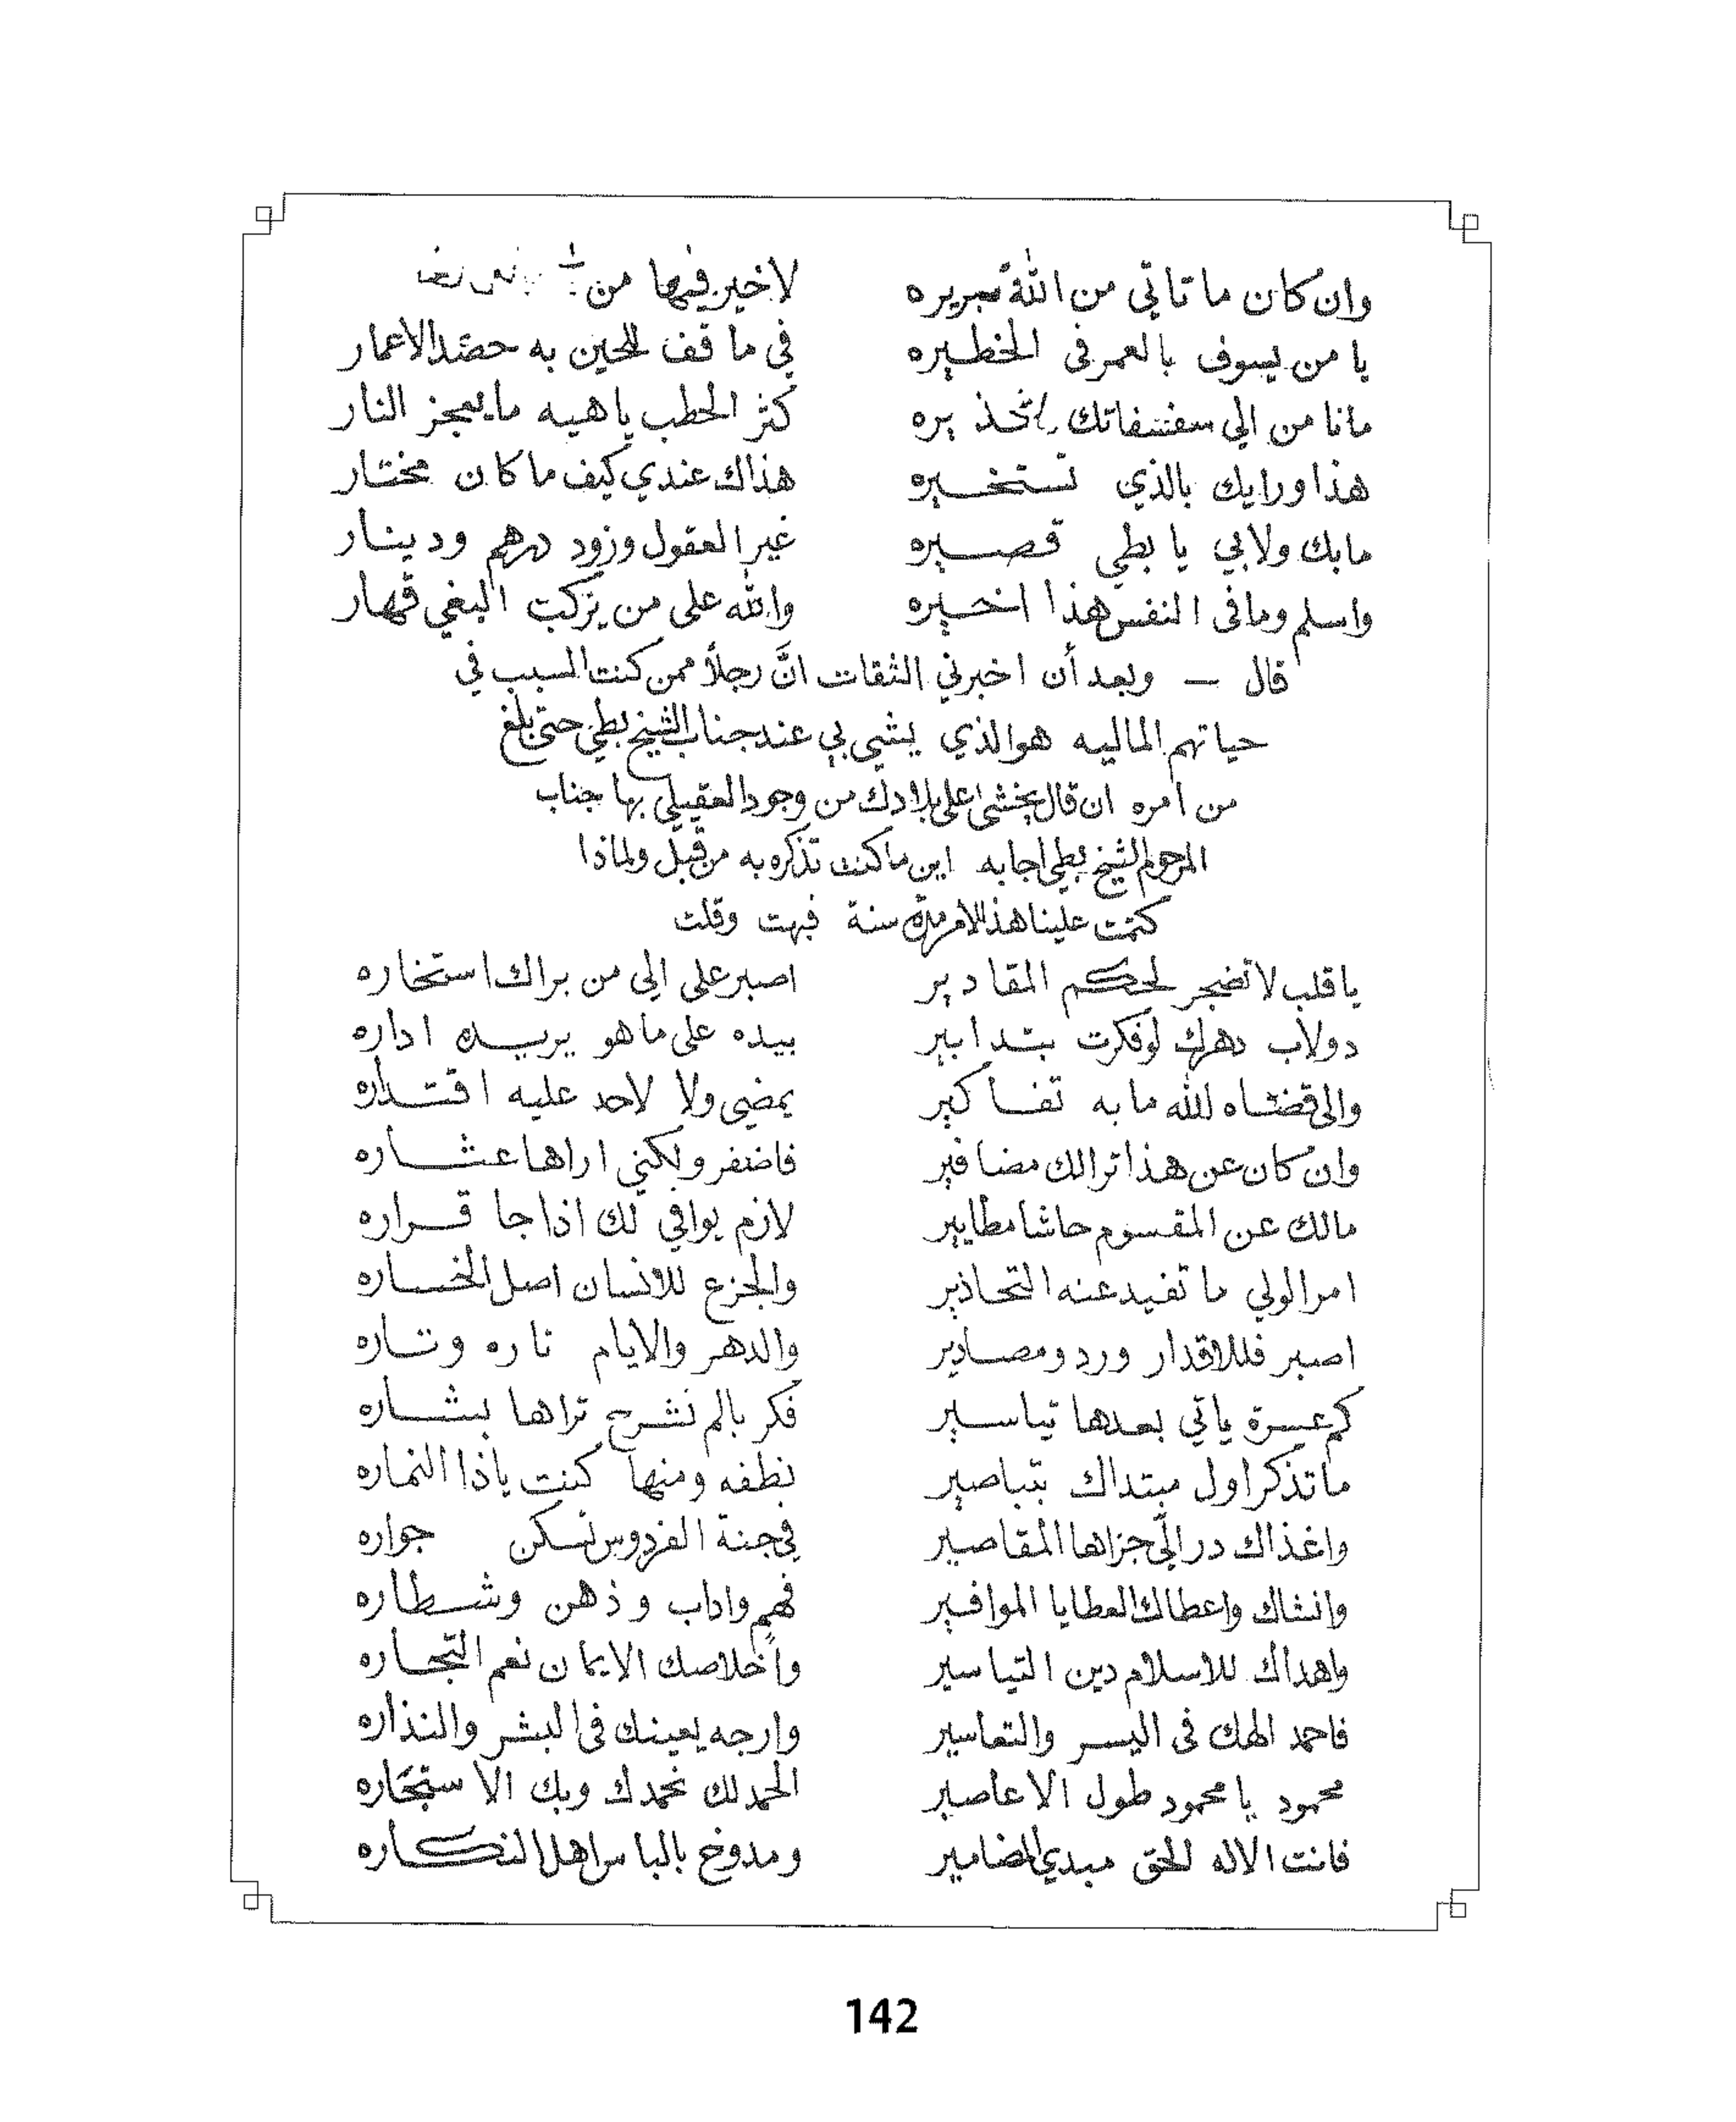 وان كان ما تاتي من الله جريره لا خير فيها من
يا من يسوف بالعمر فى الخطيره في ما قف للحين به حصد الاعمار
مانا من الي سفسفاتك بره كثر الحطب ياهيه مايعجز النار
هذا ورايك بالذي تستخيره هذاك عندي كيف ما كان مختار
مابك ولابي يا بطي قصيره غير العقول وزود درهم ودينار
واسلم ومافى النفس هذا اخيره والله على من يركب البغي قهار
قال – وبعد أن اخبرني الثقات انَّ رجلاً ممن كنت السبب في
حياتهم الماليه هو الذي يشي بي عند جناب الشيخ بطي حتى بلغ
من امره ان قال يخشى على بلادك من وجود العقيلي بها جناب
المرحوم الشيخ بطي اجابه اين ما كنت تذكره به من قبل ولماذا
كتمت علينا هذا الامر مدة سنة فبهت وقلت
يا قلب لا تضجر لحكم المقادير اصبر على الي من براك استخاره
دولاب دهرك لو فكرت بتدابير بيده على ما هو يريده اداره
والى قضاه الله ما به تفاكير يمضي ولا لاحد عليه اقتداره
وان كان عن هذا ترالك مضافير فاضفر ولكني اراها عثاره
مالك عن المقسوم حاشا مطايير لازم يوافي لك اذا جا قراره
امر الولي ما تفيد عنه التحاذير والجزع للانسان اصل الخساره
اصبر فللاقدار ورد ومصادير والدهر والايام تاره وتاره
كم عسرة ياتي بعدها تياسير فكر بالم نشرح تراها بشاره
ما تذكر اول مبتداك بتباصير نطفه ومنها كنت ياذا النماره
واغذاك در الي جزاها المقاصير في جنة الفردوس تسكن جواره
وانشاك واعطاك العطايا الموافير فهم واداب وذهن وشطاره
واهداك للاسلام دين التياسير وأخلاصك الايمان نعم التجاره
فاحمد الهك فى اليسر والتعاسير وارجه يعينك فى البشر والنذاره
محمود يا محمود طول الاعاصير الحمد لك نحمدك وبك الاستجاره
فانت الاله الحق مبدي المضامير ومدوخ بالباس اهل النكاره
142